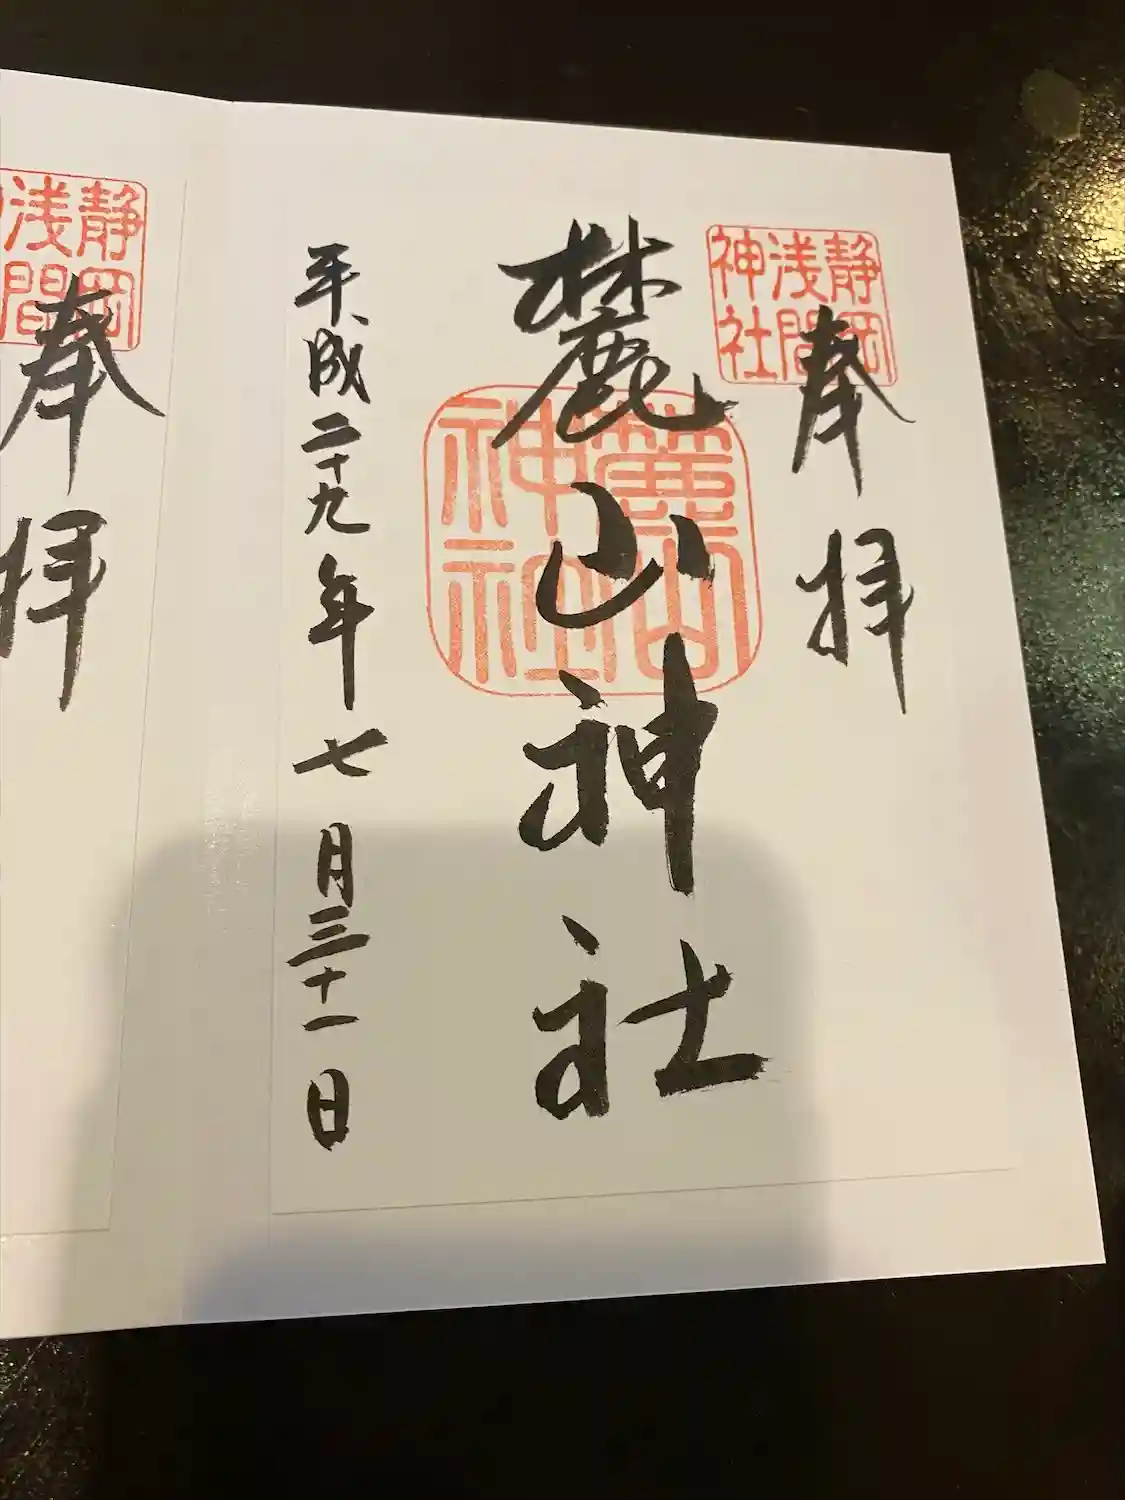 静岡
浅間
神社
奉拝
麓山
神社
麓山神社
平成二十九年七月三十一日
静岡
浅間
奉拝